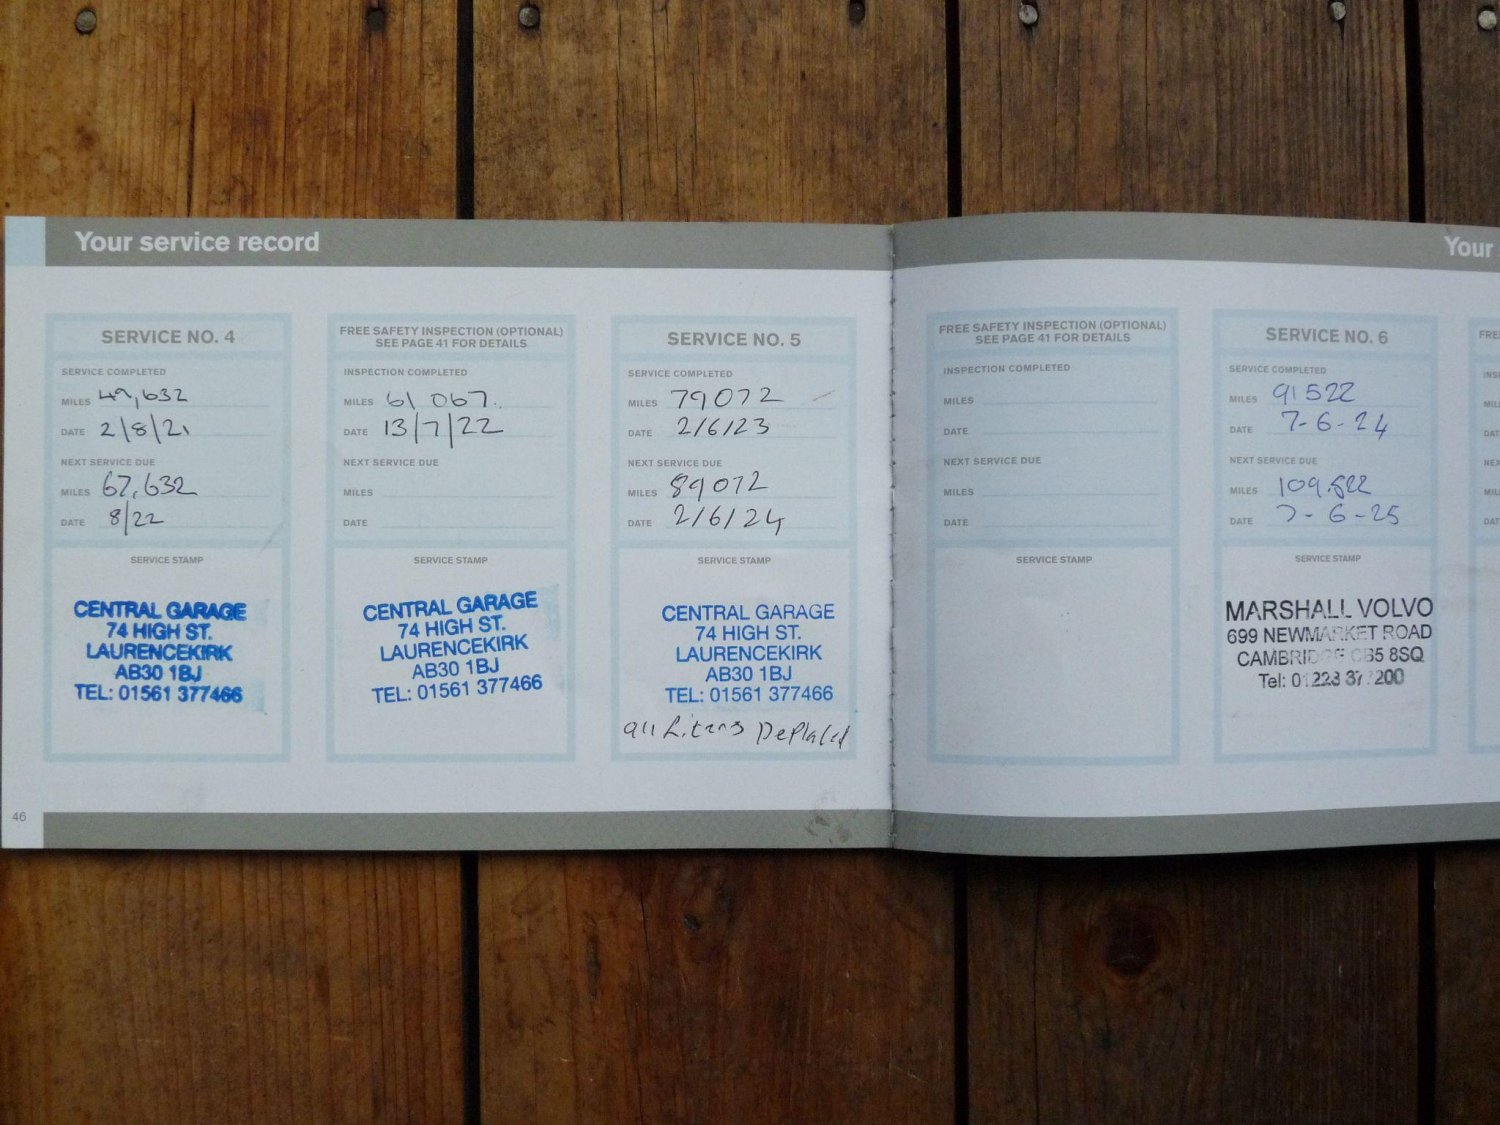 Your service record
SERVICE NO. 4
SERVICE COMPLETED
MILES 49,632
DATE 2/8/21
NEXT SERVICE DUE
MILES 67,632
DATE 8/22
SERVICE STAMP
CENTRAL GARAGE
74 HIGH ST.
LAURENCEKIRK
AB30 1BJ
TEL: 01561 377466
FREE SAFETY INSPECTION (OPTIONAL)
SEE PAGE 41 FOR DETAILS
INSPECTION COMPLETED
MILES 61 067.
DATE 13/7/22
NEXT SERVICE DUE
MILES
DATE
SERVICE STAMP
CENTRAL GARAGE
74 HIGH ST.
LAURENCEKIRK
AB30 1BJ
TEL: 01561 377466
SERVICE NO. 5
SERVICE COMPLETED
MILES 79072
DATE 2/6/23
NEXT SERVICE DUE
MILES 89072
DATE 2/6/24
SERVICE STAMP
CENTRAL GARAGE
74 HIGH ST.
LAURENCEKIRK
AB30 1BJ
TEL: 01561 377466
all
46
Your
FREE SAFETY INSPECTION (OPTIONAL)
SEE PAGE 41 FOR DETAILS
INSPECTION COMPLETED
MILES
DATE
NEXT SERVICE DUE
MILES
DATE
SERVICE STAMP
SERVICE NO. 6
SERVICE COMPLETED
MILES 91522
DATE 7-6-24
NEXT SERVICE DUE
MILES 109,522
DATE 7-6-25
SERVICE STAMP
MARSHALL VOLVO
699 NEWMARKET ROAD
CAMBRIDGE CB5 8SQ
Tel: